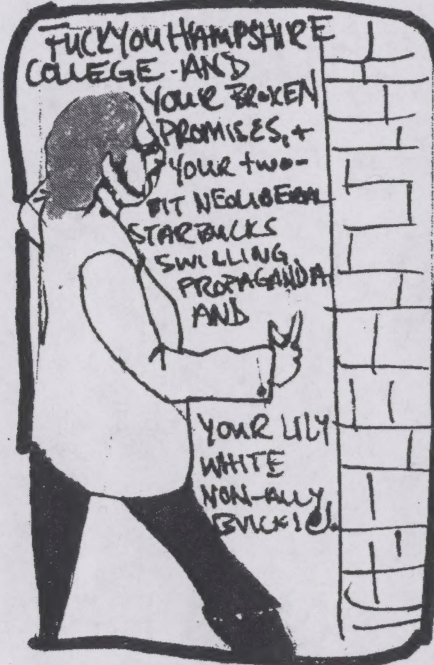 FUCK YOU HAMPSHIRE
COLLEGE-AND
YOUR BROKEN
PROMISES, +
YOUR two-
BIT NEOLIBERAL
STARBUCKS
SWILLING
PROPAGANDA
AND
YOUR LILY
WHITE
NON-ALLY